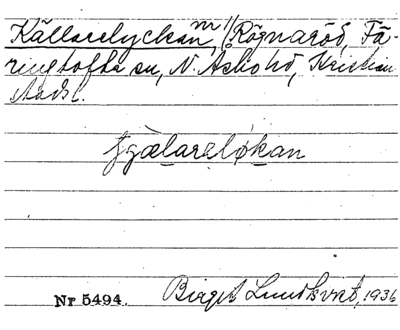 Källarelyckan, nr 11 Rögnaröd, Fä-
ringtofta sn, N. Åsbo hd, Kristian-
stads l.
Nr 5494.
Birgit Lundkvist, 1936